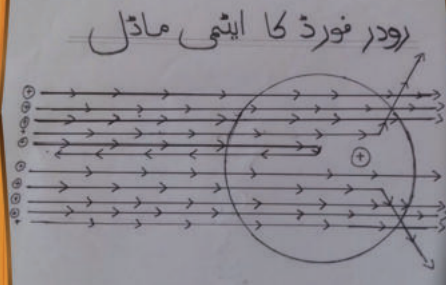 رودر فورڈ کا ایٹمی ماڈل
+
+
+
+
+
+
+
+
+
+
+